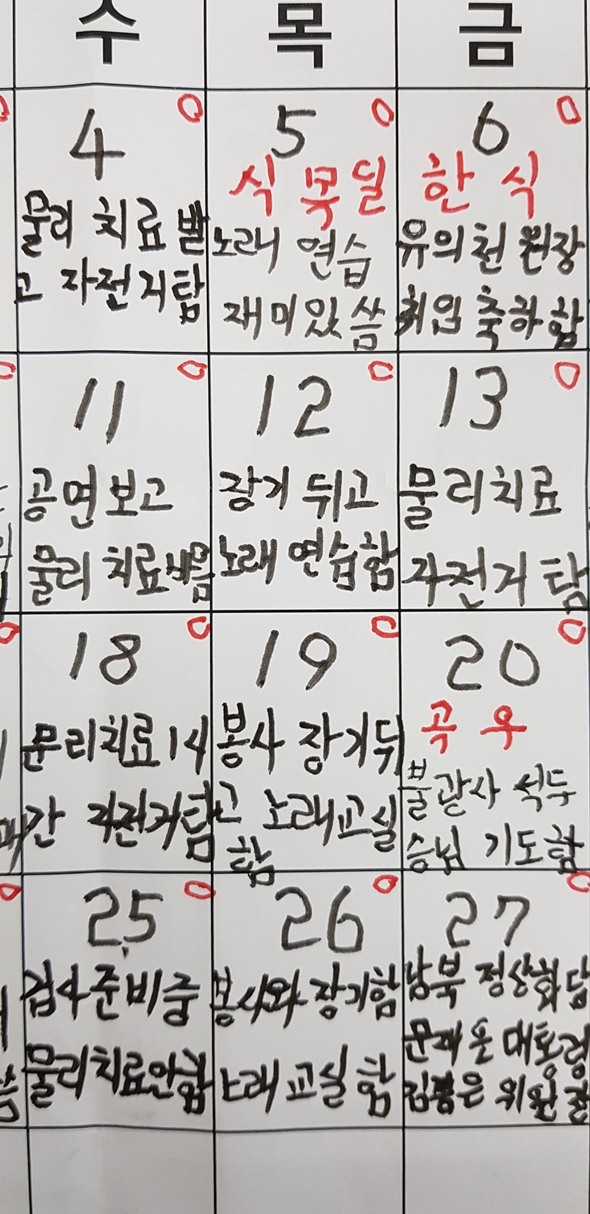 수 목 금
4 5 6
식 목 일 한 식
물리 치료 받 노래 연습 유의천 원장
고 자전거탐 재미있씀 취임 축하 함
11 12 13
공연보고 장기 뒤고 물리치료
물리 치료 노래 연습함 자전거 탐
18 19 20
곡 우
물리치료 1시 봉사 장기뒤 불광사 석두
간 자전거탐 고 노래교실 스님 기도함
함
25 26 27
검사준비중 봉사와 장기함 남북 정상회담
물리치료안함 노래교실 함 문재인 대통령
김정은 위원장